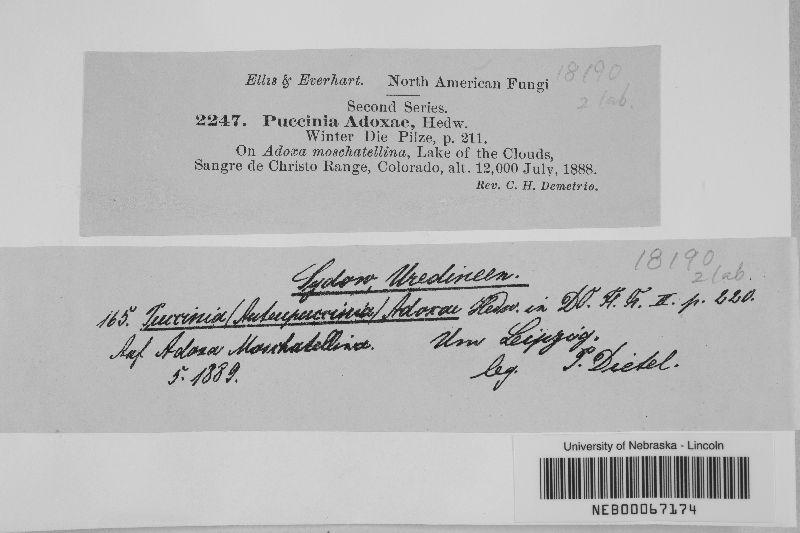 Ellis & Everhart. North American Fungi
18190
2 lab.
Second Series.
2247. Puccinia Adoxae, Hedw.
Winter Die Pilze, p. 211.
On Adoxa moschatellina, Lake of the Clouds,
Sangre de Christo Range, Colorado, alt. 12,000 July, 1888.
Rev. C. H. Demetrio.
18190
2 lab.
Sydow, Uredineen.
165. Puccinia (Auteupuccinia) Adoxae Hedw. in D.C. Fl. Fr. II. p. 220.
Auf Adoxa Moschatellina. Um Leipzig.
5. 1889. leg. P. Dietel.
University of Nebraska - Lincoln
NEB00067174